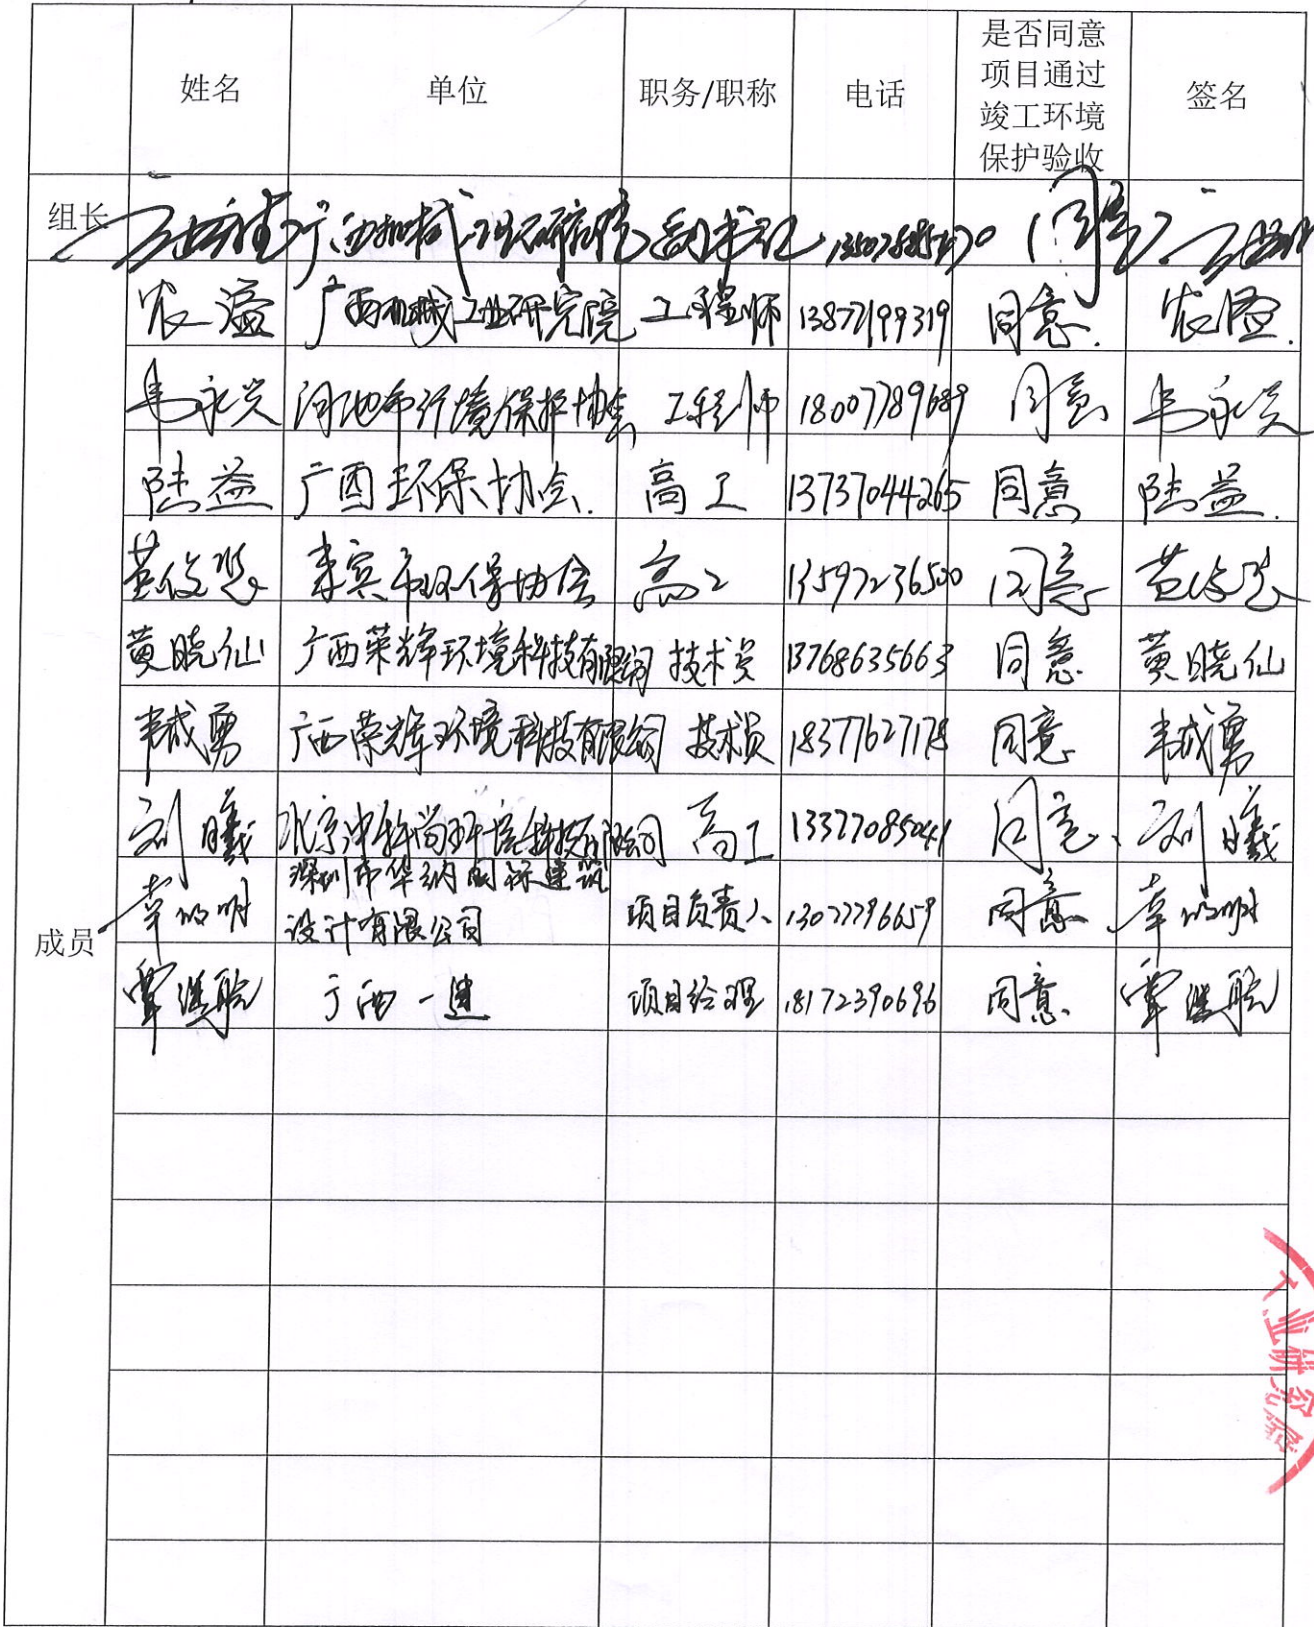 姓名 单位 职务/职称 电话 是否同意 签名
项目通过
竣工环境
保护验收
组长 广西机械工业研究院 副书记 同意
农溢 广西机械工业研究院 工程师 13877199319 同意. 农溢.
韦永兴 河池市环境保护协会 工程师 18007789689 同意 韦永兴
陆益 广西环保协会. 高工 13737044265 同意 陆益.
来宾市环保协会 高工 13597236500 同意
黄晓仙 广西荣辉环境科技有限公司 技术员 13768635663 同意 黄晓仙
韦成勇 广西荣辉环境科技有限公司 技术员 18377627178 同意 韦成勇
刘曦 高工 13377085041 同意、 刘曦
深圳市华纳国际建筑
设计有限公司 项目负责人 13077796659 同意
成员
广西一建 项目经理 18172390696 同意
工业研究院